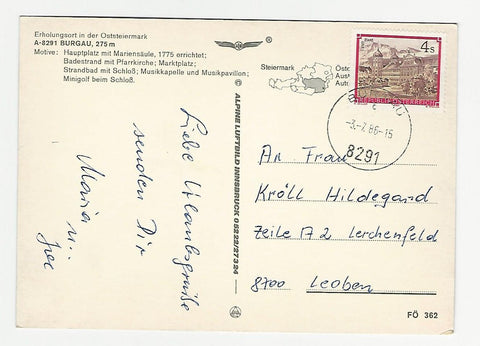 Erholungsort in der Oststeiermark
A-8291 BURGAU, 275 m
Motive: Hauptplatz mit Mariensäule, 1775 errichtet;
Badestrand mit Pfarrkirche; Marktplatz;
Strandbad mit Schloß; Musikkapelle und Musikpavillon;
Minigolf beim Schloß.
®
Steiermark
4s
REPUBLIK ÖSTERREICH
-3.-7.86-15
8291
© ALPINE LUFTBILD INNSBRUCK 0 52 22/27 3 24
Liebe Urlaubsgrüße
senden Dir
Maria u.
An Frau
Kröll Hildegard
Zeile 172 Lerchenfeld
8700 Leoben
FÖ 362